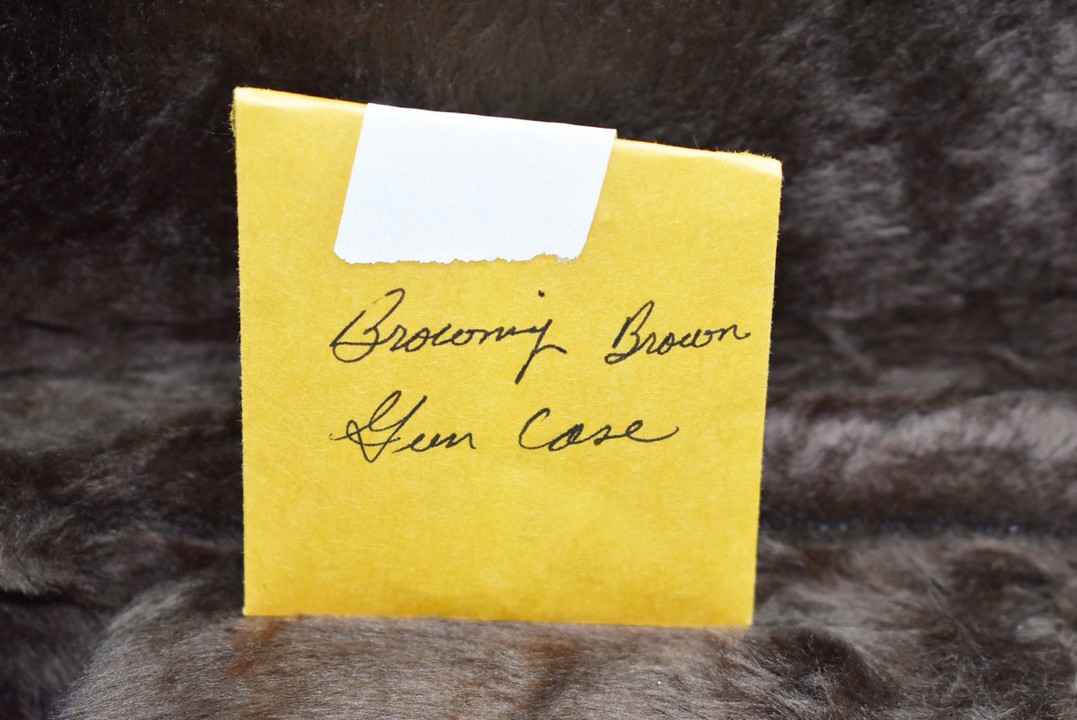 Browning Brown
Gun Case